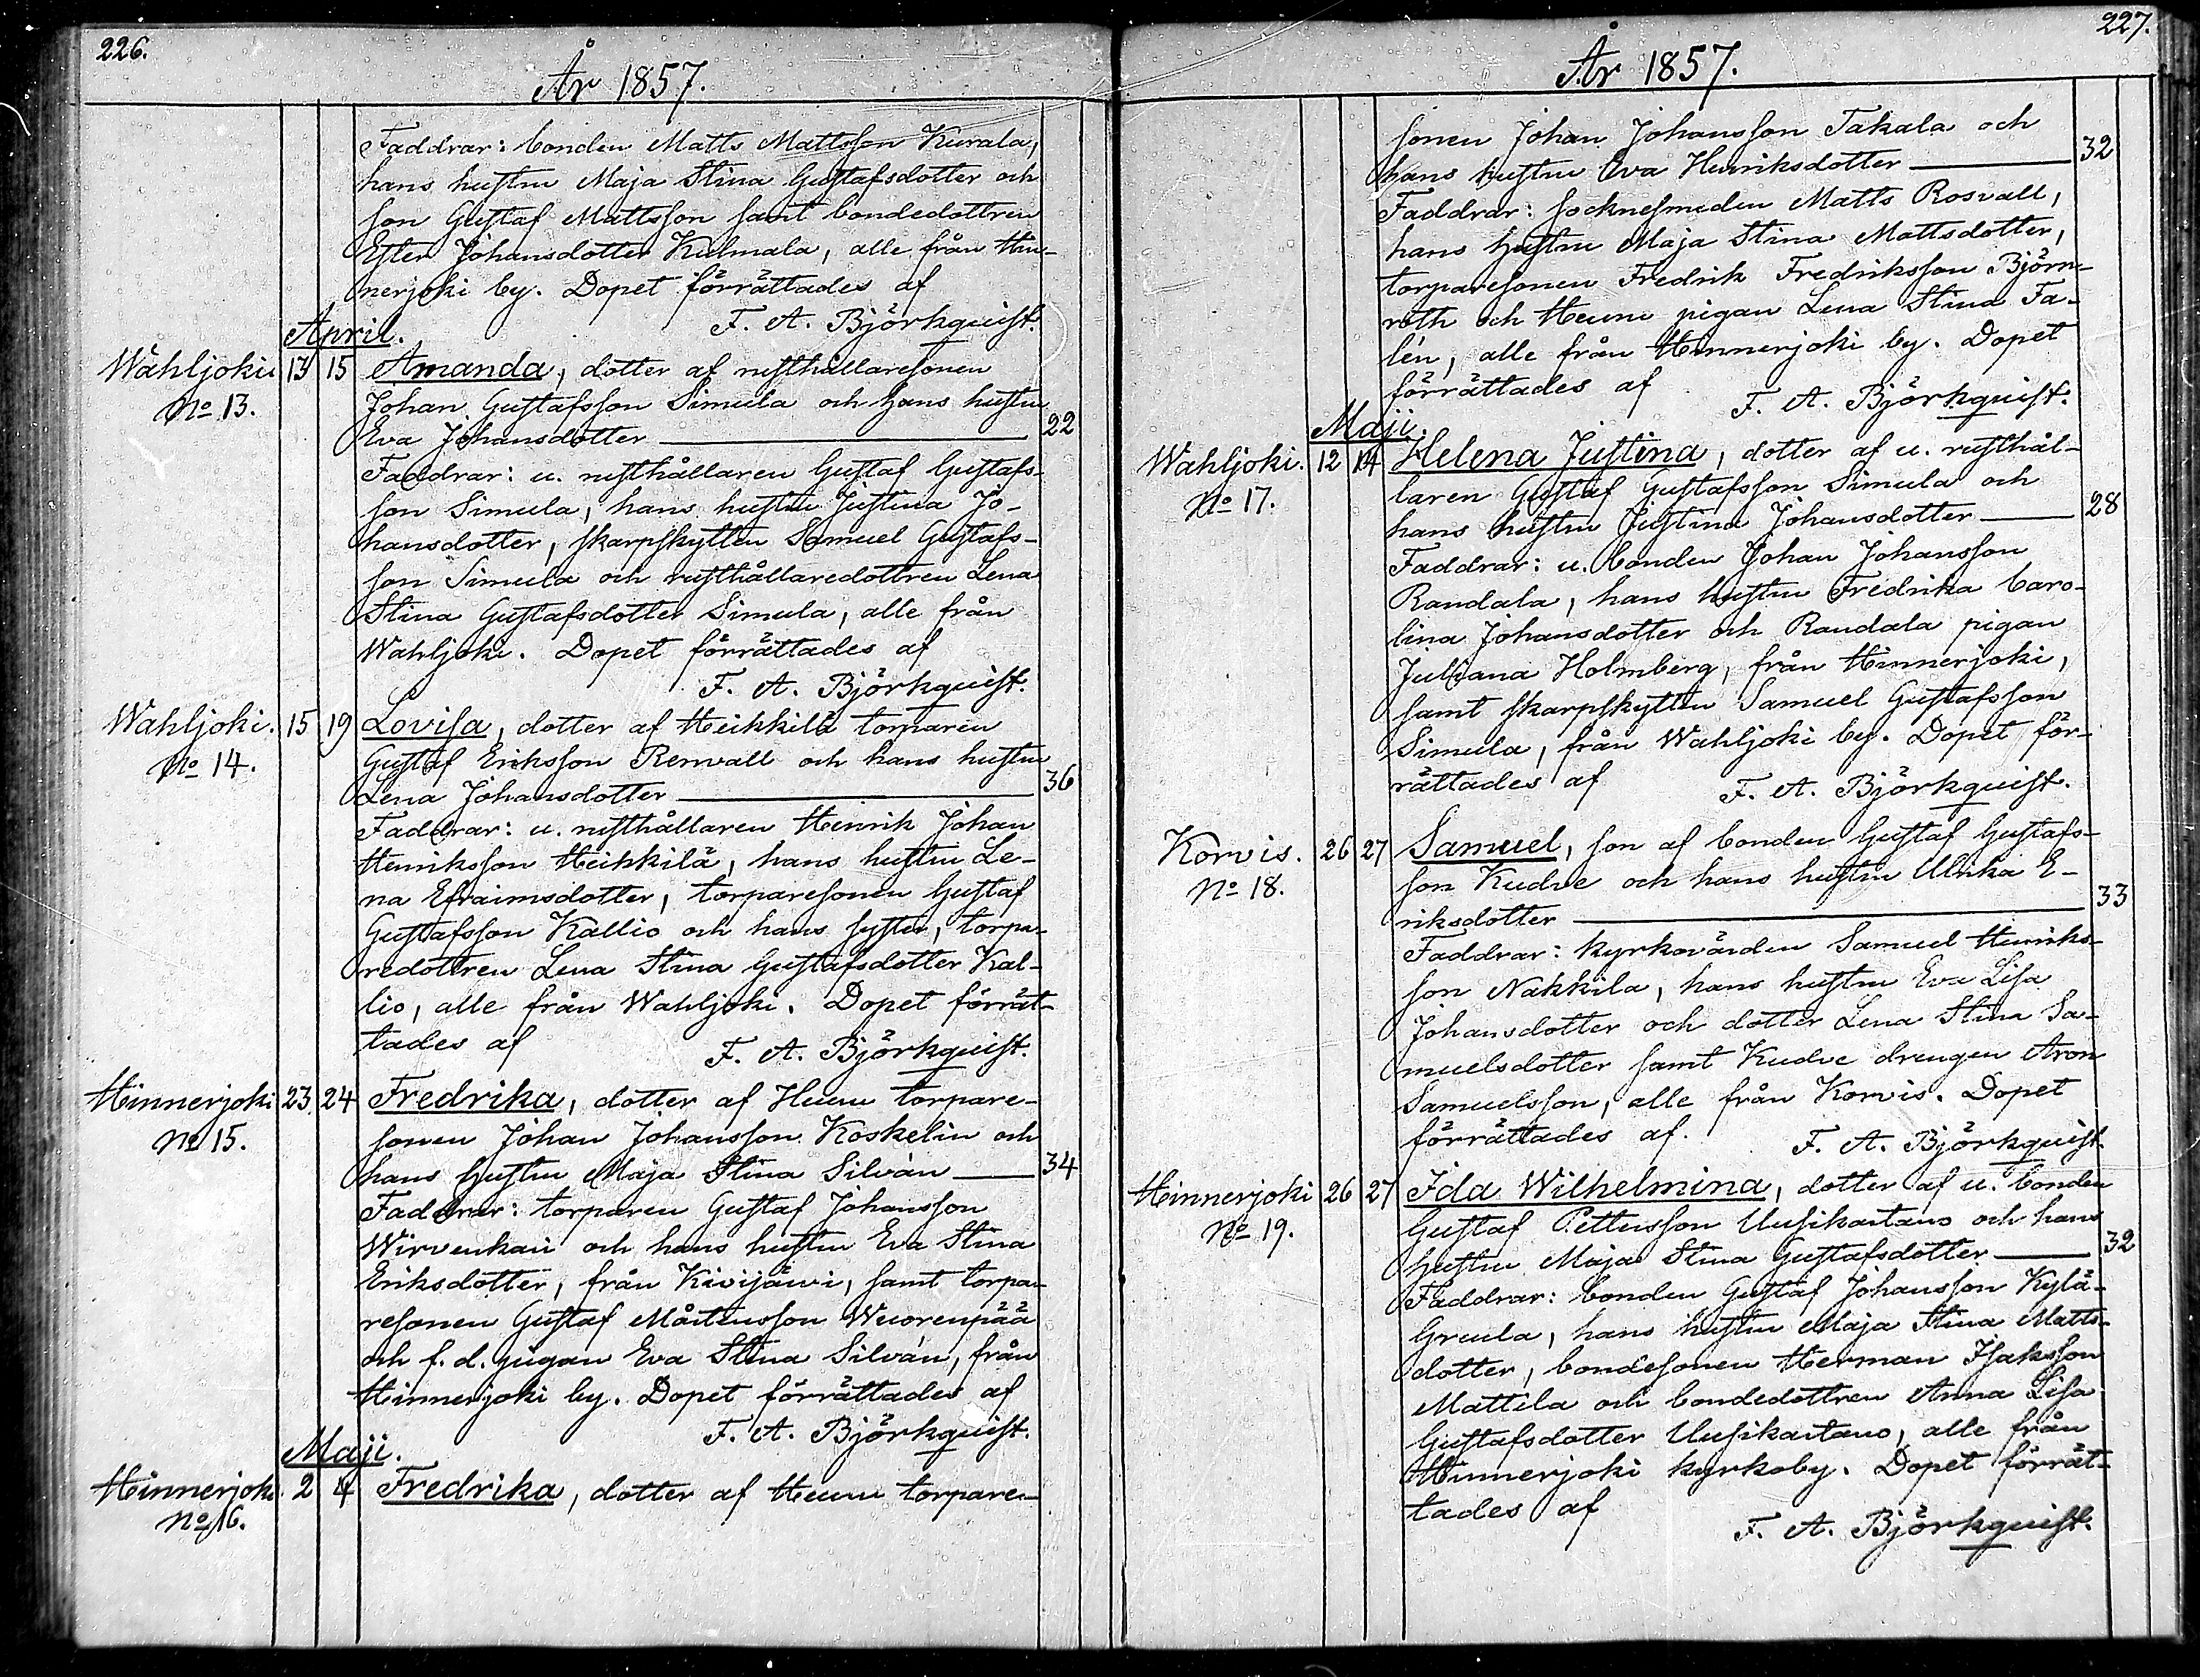 226.
År 1857.
Faddrar: bonden Matts Mattsson Kurala,
hans hustru Maja Stina Gustafsdotter och
son Gustaf Mattsson samt bondedottren
Ester Johansdotter Kulmala, alle från Hin-
nerjoki by. Dopet förrättades af
F. A. Björkquist.
April.
Wahljoki 13 15 Amanda, dotter af rusthållaresonen
No 13. Johan Gustafsson Simula och hans hustru
Eva Johansdotter — 22
Faddrar: u. rusthållaren Gustaf Gustafs-
son Simula, hans hustru Justina Jo-
hansdotter, skarpskytten Samuel Gustafs-
son Simula och rusthållaredottren Lena
Stina Gustafsdotter Simula, alle från
Wahljoki. Dopet förrättades af
F. A. Björkquist.
Wahljoki. 15 19 Lovisa, dotter af Heikkilä torparen
No 14. Gustaf Eriksson Renvall och hans hustru
Lena Johansdotter — 36
Faddrar: u. rusthållaren Henrik Johan
Henriksson Heikkilä, hans hustru Le-
na Efraimsdotter, torparesonen Gustaf
Gustafsson Kallio och hans syster, torpa-
redottren Lena Stina Gustafsdotter Kal-
lio, alle från Wahljoki. Dopet förrät-
tades af F. A. Björkquist.
Hinnerjoki 23 24 Fredrika, dotter af Hennu torpare-
No 15. sonen Johan Johansson Koskelin och
hans hustru Maja Stina Silvàn — 34
Faddrar: torparen Gustaf Johansson
Wirvenkari och hans hustru Eva Stina
Eriksdotter, från Kivijärvi, samt torpa-
resonen Gustaf Mårtensson Wuorenpää
och f. d. pigan Eva Stina Silván, från
Hinnerjoki by. Dopet förrättades af
F. A. Björkquist.
Maji.
Hinnerjoki. 2 4 Fredrika, dotter af Hennu torpare-
No 16.
227.
År 1857.
sonen Johan Johansson Takala och
hans hustru Eva Henriksdotter — 32
Faddrar: socknesmeden Matts Rosvall,
hans hustru Maja Stina Mattsdotter,
torparesonen Fredrik Fredriksson Björn-
roth och Hennu pigan Lena Stina Fa-
lén, alle från Hinnerjoki by. Dopet
förrättades af F. A. Björkquist.
Maji.
Wahljoki. 12 14 Helena Justina, dotter af u. rusthål-
No 17. laren Gustaf Gustafsson Simula och
hans hustru Justina Johansdotter — 28
Faddrar: u. bonden Johan Johansson
Randala, hans hustru Fredrika Caro-
lina Johansdotter och Randala pigan
Juliana Holmberg, från Hinnerjoki,
samt skarpskytten Samuel Gustafsson
Simula, från Wahljoki by. Dopet för-
rättades af F. A. Björkquist.
Korvis. 26 27 Samuel, son af bonden Gustaf Gustafs-
No 18. son Kudve och hans hustru Ulrika E-
riksdotter — 33
Faddrar: kyrkovärden Samuel Henriks-
son Nakkila, hans hustru Eva Lisa
Johansdotter och dotter Lena Stina Sa-
muelsdotter samt Kudve drengen Aron
Samuelsson, alle från Korvis. Dopet
förrättades af. F. A. Björkquist
Hinnerjoki 26 27 Ida Wilhelmina, dotter af u. bonden
No 19. Gustaf Pettersson Uusikartano och hans
hustru Maja Stina Gustafsdotter — 32
Faddrar: bonden Gustaf Johansson Kylä-
Greula, hans hustru Maja Stina Matts-
dotter, bondesonen Herman Isaksson
Mattila och bondedottren Anna Lisa
Gustafsdotter Uusikartano, alle från
Hinnerjoki kyrkoby. Dopet förrät-
tades af F. A. Björkquist.